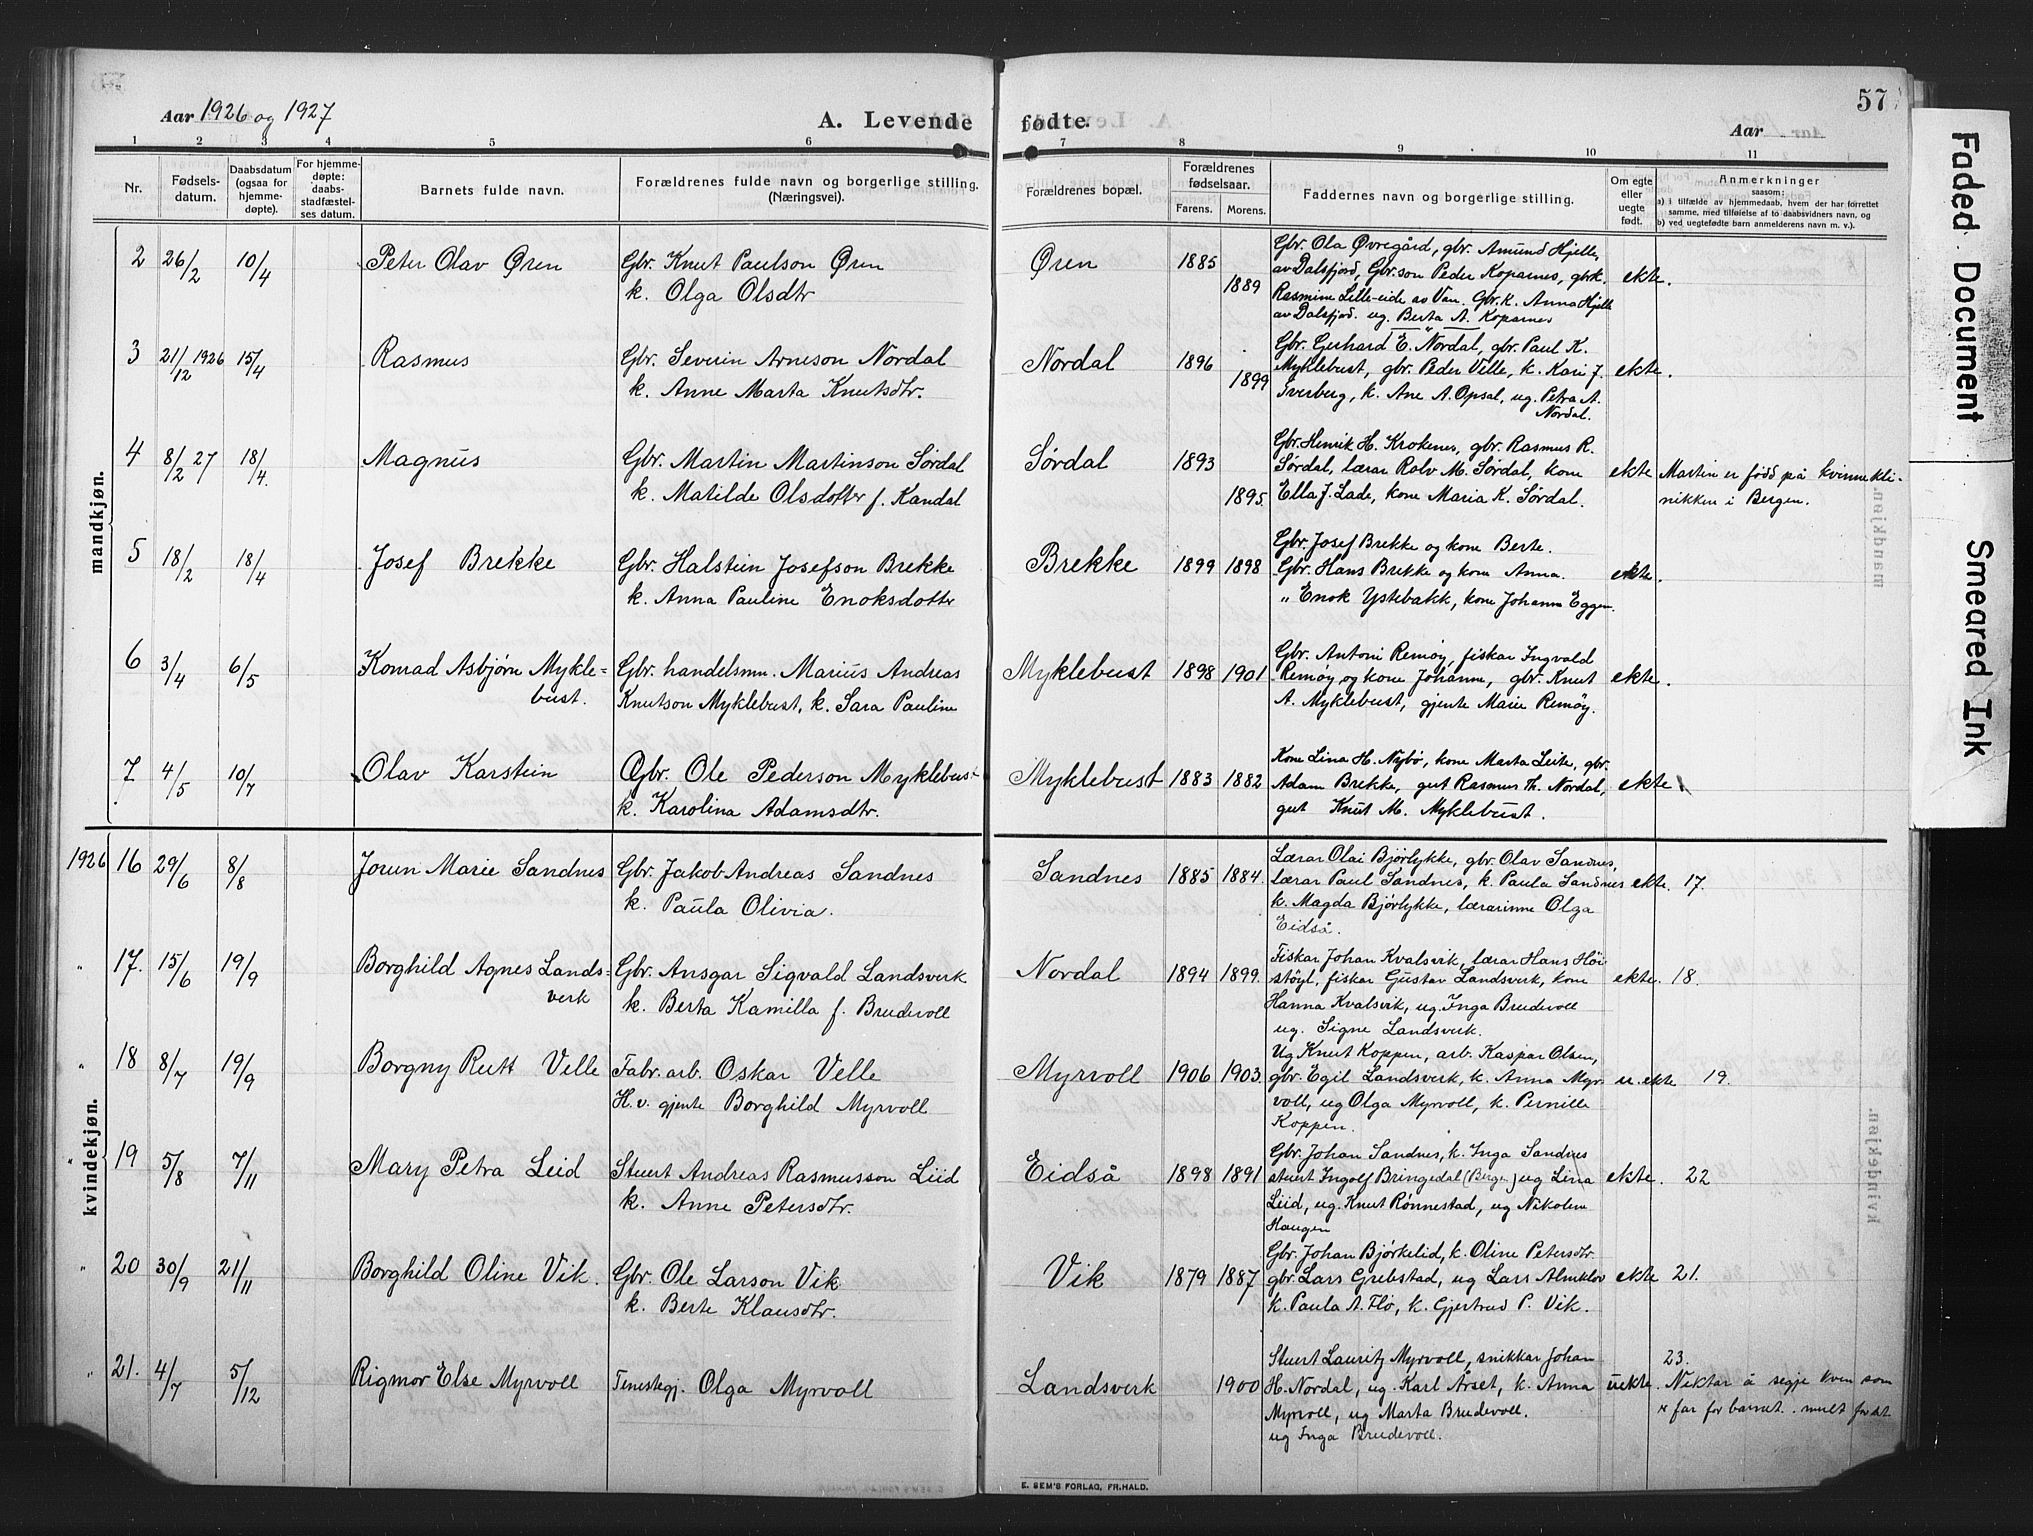 Aar 1926 og 1927
A. Levende fødte.
Aar
57
1 2 3 4 5 6 7 8 9 10 11
Nr.
Fødsels-
datum.
Daabsdatum
(ogsaa for
hjemme-
døpte).
For hjemme-
døpte:
daabs-
stadfæstel-
ses datum.
Barnets fulde navn.
Forældrenes fulde navn og borgerlige stilling.
(Næringsvei).
Forældrenes bopæl.
Forældrenes
fødselsaar.
Farens. Morens.
Faddernes navn og borgerlige stilling.
Om egte
eller
uegte
født.
Anmerkninger
saasom:
a) i tilfælde av hjemmedaab, hvem der har forrettet
samme, med tilføielse af to daabsvidners navn, og
b) ved uegtefødte barn anmelderens navn m. v.).
mandkjøn.
2 26/2 10/4 Peter Olav Øren
Gbr. Knut Paulson Øren
k. Olga Olsdtr
Øren 1885 1889
Gbr. Ola Øvregård, gbr. Amund Hjelle,
av Dalsfjord, Gbr.son Peder Koparnes, gbrk.
Rasmine Lille-eide av Van. Gbr.k. Anna Hjelle
av Dalsfjord. ug. Berta A. Koparnes
ekte.
3 21/12 1926 15/4 Rasmus
Gbr. Severin Arneson Nordal
k. Anne Marta Knutsdtr.
Nordal 1896 1899
Gbr. Gerhard E. Nordal, gbr. Paul K.
Myklebust, gbr. Peder Velle, k. Kari J.
Sverberg, k. Ane A. Opsal, ug. Petra A.
Nordal.
ekte.
4 8/2 27 18/4. Magnus
Gbr. Martin Martinson Sørdal
k. Matilde Olsdotter f. Kandal
Sørdal 1893 1895.
Gbr. Henrik H. Krokenes, gbr. Rasmus R.
Sørdal, lærar Rolv M. Sørdal, kone
Ella J. Lade, kone Maria K. Sørdal.
ekte
Martin er född på kvinnekli-
nikken i Bergen.
5 18/2 18/4 Josef Brekke
Gbr. Halstein Josefson Brekke
k. Anna Pauline Enoksdotter
Brekke 1899 1898
Gbr. Josef Brekke og kone Berte.
Gbr. Hans Brekke og kone Anna.
" Enok Ystebakk, kone Johanne Eggen.
ekte.
6 3/4 6/5 Konrad Asbjørn Mykle-
bust.
Gbr. handelsmn. Marius Andreas
Knutson Myklebust, k. Sara Pauline
Myklebust 1898 1901
Gbr. Antoni Remøy, fiskar Ingvald
Remøy og kone Johanne, gbr. Knut
A. Myklebust, gjente Marie Remøy.
ekte.
7 4/5 10/7 Olav Karstein
Gbr. Ole Pederson Myklebust
k. Karolina Adamsdtr.
Myklebust 1883 1882
Kone Lina H. Nybø, kone Marta Leite, gbr.
Adam Brekke, gut Rasmus Th. Nordal,
gut Knut M. Myklebust.
ekte
kvindekjøn.
1926 16 29/6 8/8 Jorun Marie Sandnes
Gbr. Jakob Andreas Sandnes
k. Paula Olivia.
Sandnes 1885 1884.
Lærar Olai Bjørlykke, gbr. Olav Sandnes,
lærar Paul Sandnes, k. Paula Sandnes
k. Magda Bjørlykke, lærarinne Olga
Eidså.
ekte. 17.
" 17. 15/6 19/9 Borghild Agnes Lands-
verk
Gbr. Ansgar Sigvald Landsverk
k. Berta Kamilla f. Brudevoll
Nordal 1894 1899.
Fiskar Johan Kvalsvik, lærar Hans Höi-
støyl, fiskar Gustav Landsverk, kone
Hanna Kvalsvik, ug. Inga Brudevoll
ug. Signe Landsverk.
ekte. 18.
" 18 8/7 19/9 Borgny Rutt Velle
Fabr. arb. Oskar Velle
H. v. gjente Borghild Myrvoll
Myrvoll 1906 1903.
Ug Knut Koppen, arb. Kaspar Olsen,
gbr. Egil Landsverk, k. Anna Myr-
voll, ug Olga Myrvoll, k. Pernille
Koppen.
u. ekte 19.
" 19 5/8 7/11 Mary Petra Leid
Stuert Andreas Rasmusson Leid
k. Anne Petersdtr.
Eidså 1898 1891
Gbr. Johan Sandnes, k. Inga Sandnes
stuert Ingolf Bringedal (Bergen) ug Lina
Leid, ug. Knut Rønnestad, ug Nikoline
Haugen
ekte. 22
" 20 30/9 21/11 Borghild Oline Vik.
Gbr. Ole Larson Vik
k. Berte Klausdtr.
Vik 1879 1887
Gbr. Johan Bjørkelid, k. Oline Petersdtr.
gbr. Lars Grebstad, ug Lars Almklov
k. Paula A. Flø, k. Gjertrud P. Vik.
ekte 21.
" 21. 4/7 5/12 Rigmor Else Myrvoll
Tenestegj. Olga Myrvoll
Landsverk 1900
Stuert Lauritz Myrvoll, snikkar Johan
H. Nordal, ug. Karl Årset, k. Anna
Myrvoll, ug Marta Brudevoll.
ug Inga Brudevoll.
uekte.
23.
Nektar å segje kven som
er far for barnet.
E. SEM'S FORLAG, FR.HALD.
Faded Document
Smeared Ink